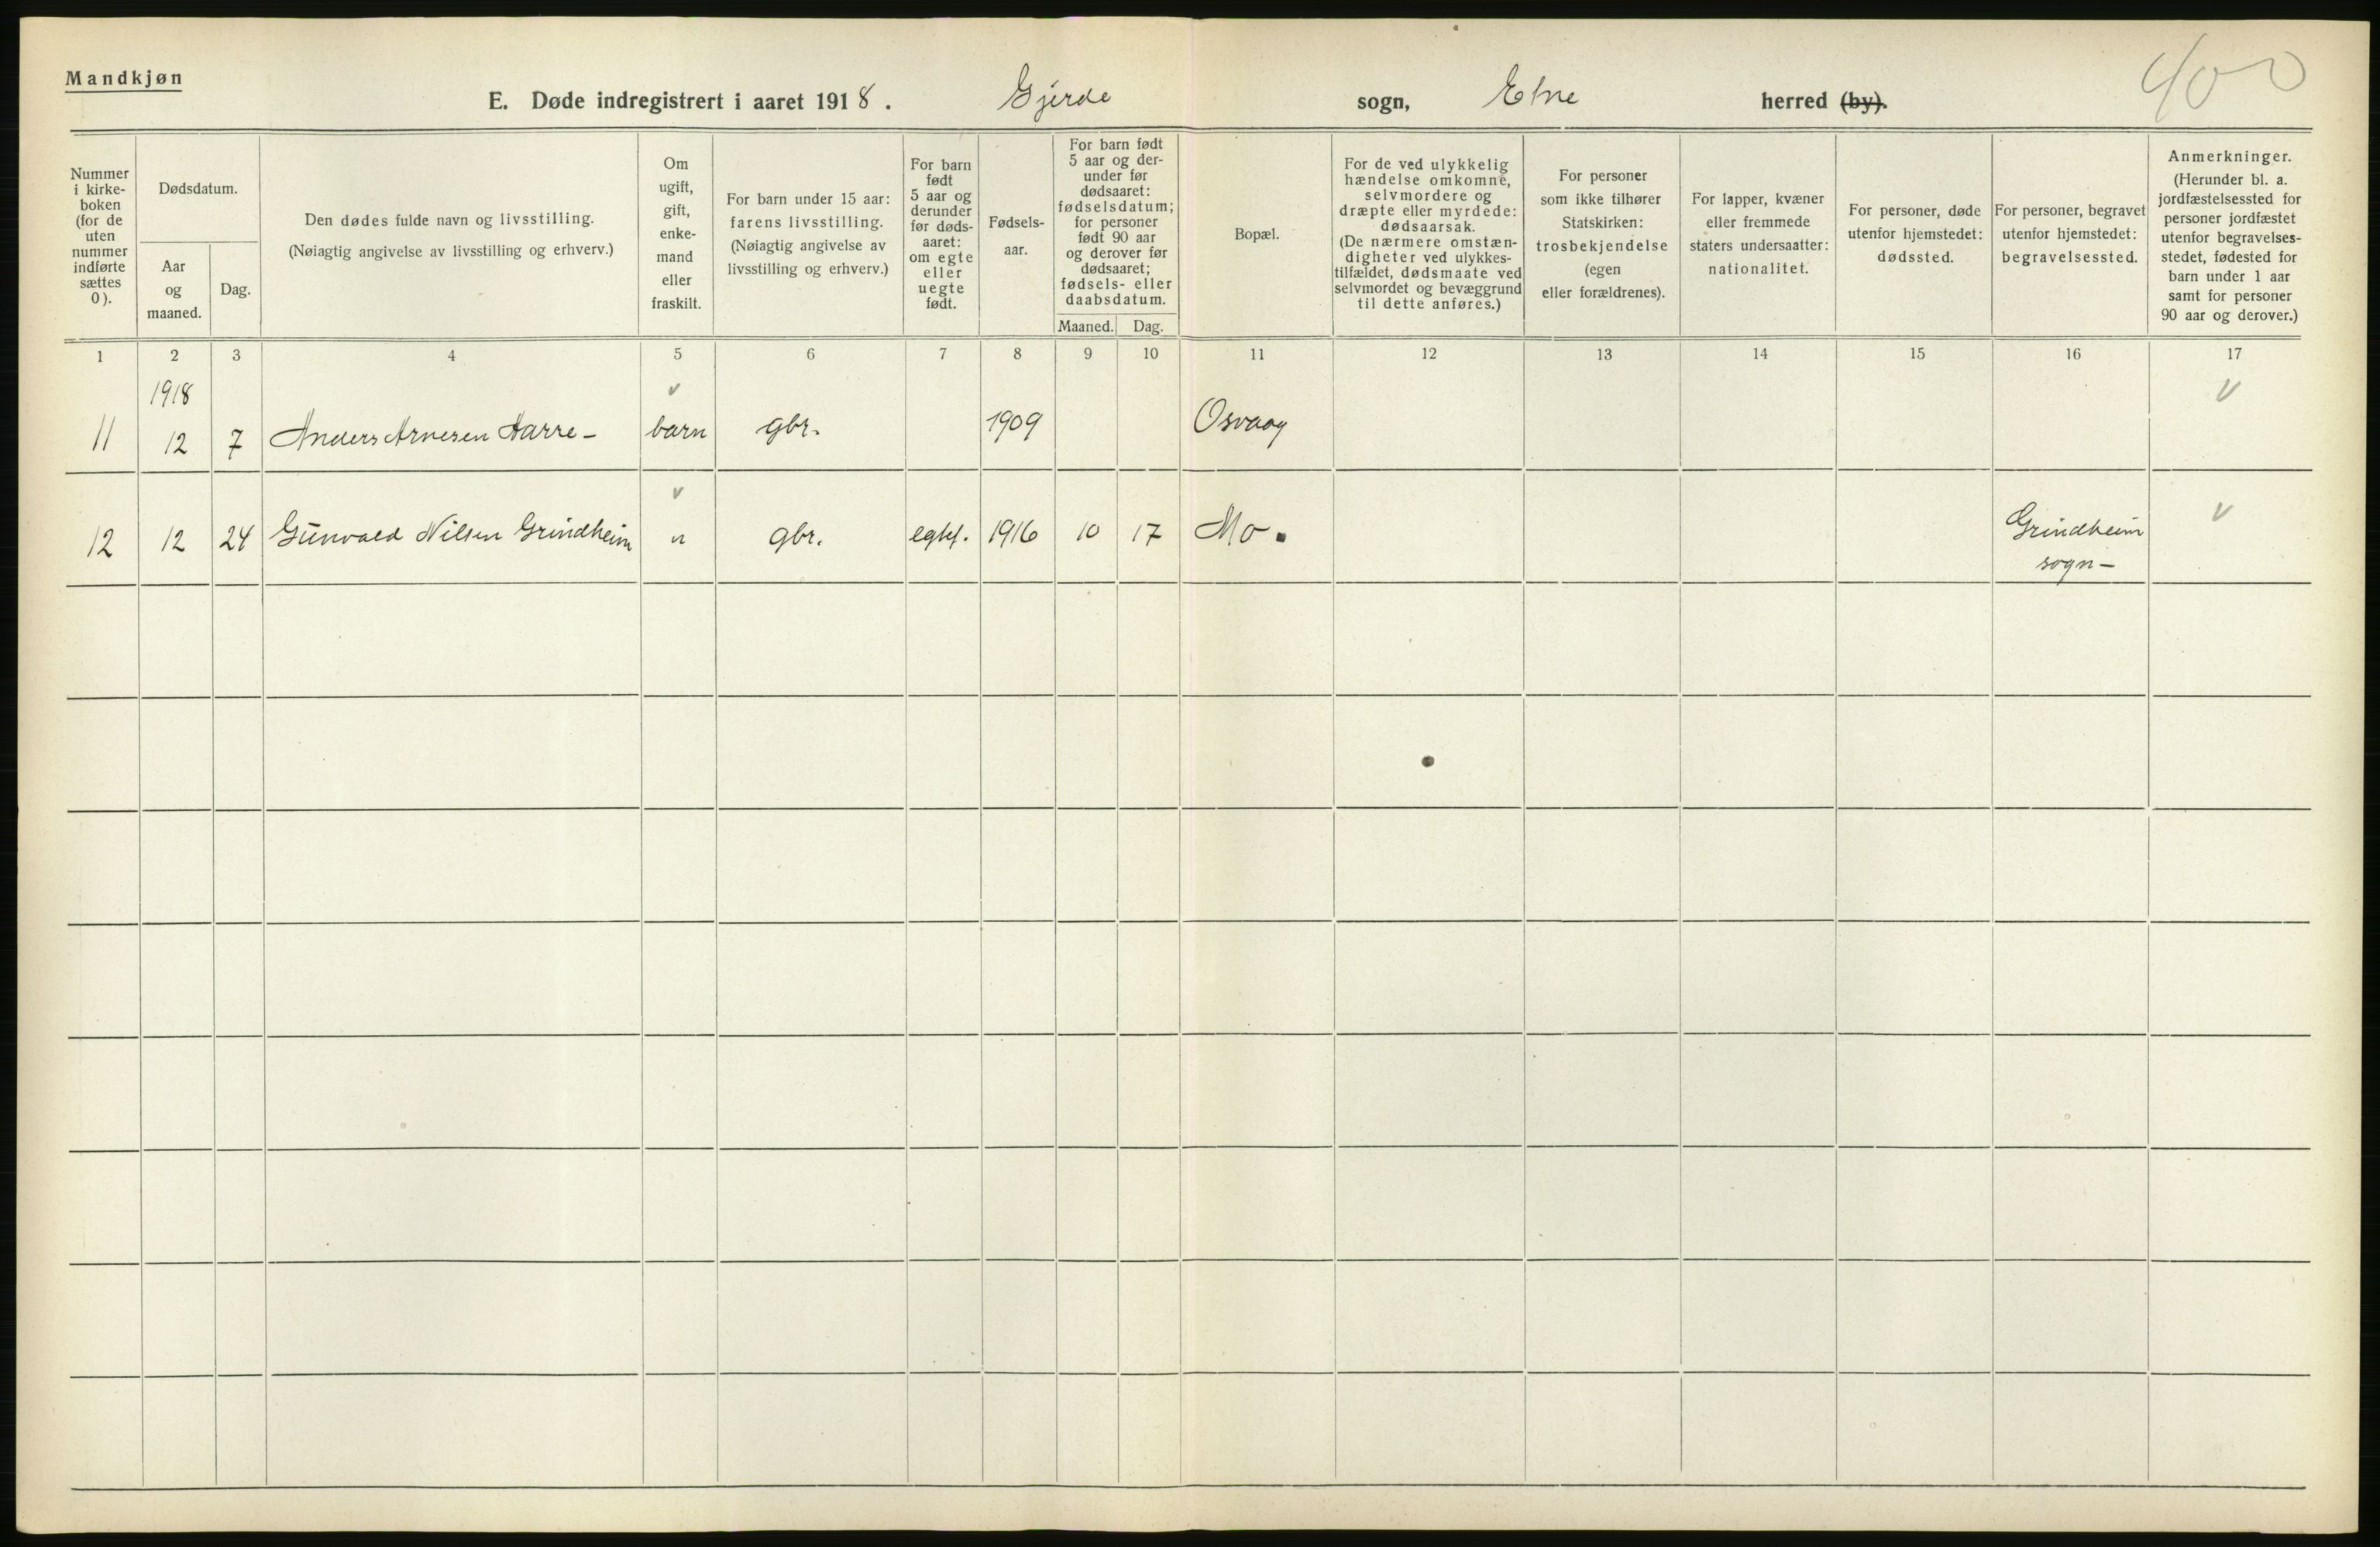 Mandkjøn
E. Døde indregistrert i aaret 1918. Gjerde sogn, Etne herred (by).
400
Nummer i kirke-boken (for de uten nummer indførte sættes 0).
Dødsdatum.
Aar og maaned.
Dag.
Den dødes fulde navn og livsstilling.
(Nøiagtig angivelse av livsstilling og erhverv.)
Om ugift, gift, enke-mand eller fraskilt.
For barn under 15 aar: farens livsstilling.
(Nøiagtig angivelse av livsstilling og erhverv.)
For barn født 5 aar og derunder før døds-aaret: om egte eller uegte født.
Fødsels-aar.
For barn født 5 aar og der-under før dødsaaret: fødselsdatum; for personer født 90 aar og derover før dødsaaret; fødsels- eller daabsdatum.
Maaned. Dag.
Bopæl.
For de ved ulykkelig hændelse omkomne, selvmordere og dræpte eller myrdede: dødsaarsak.
(De nærmere omstæn-digheter ved ulykkes-tilfældet, dødsmaate ved selvmordet og bevæggrund til dette anføres.)
For personer som ikke tilhører Statskirken: trosbekjendelse (egen eller forældrenes).
For lapper, kvæner eller fremmede staters undersaatter: nationalitet.
For personer, døde utenfor hjemstedet: dødssted.
For personer, begravet utenfor hjemstedet: begravelsessted.
Anmerkninger.
(Herunder bl. a. jordfæstelsessted for personer jordfæstet utenfor begravelses-stedet, fødested for barn under 1 aar samt for personer 90 aar og derover.)
1 2 3 4 5 6 7 8 9 10 11 12 13 14 15 16 17
1918 v v
11 12 7 Anders Arnesen Aarre- barn gbr. 1909 Osvaag
v v
12 12 24 Gunvald Nilsen Grindheim " gbr. egtef. 1916 10 17 Mo. Grindheim
sogn-